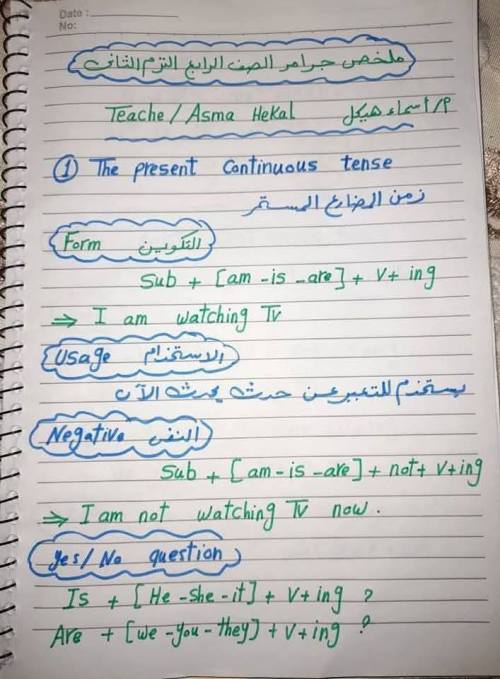 Date :
No:
ملخص جرامر الصف الرابع الترم الثانى
Teache / Asma Hekal م/ اسماء هيكل
① The present continuous tense
زمن المضارع المستمر
Form التكوين
Sub + [am - is - are] + v + ing
⇒ I am watching Tv
Usage الاستخدام
يستخدم للتعبير عن حدث يحدث الآن
Negative النفى
Sub + [am - is - are] + not + v + ing
⇒ I am not watching Tv now .
yes / No question
Is + [He - she - it] + v + ing ?
Are + [we - you - they] + v + ing ?